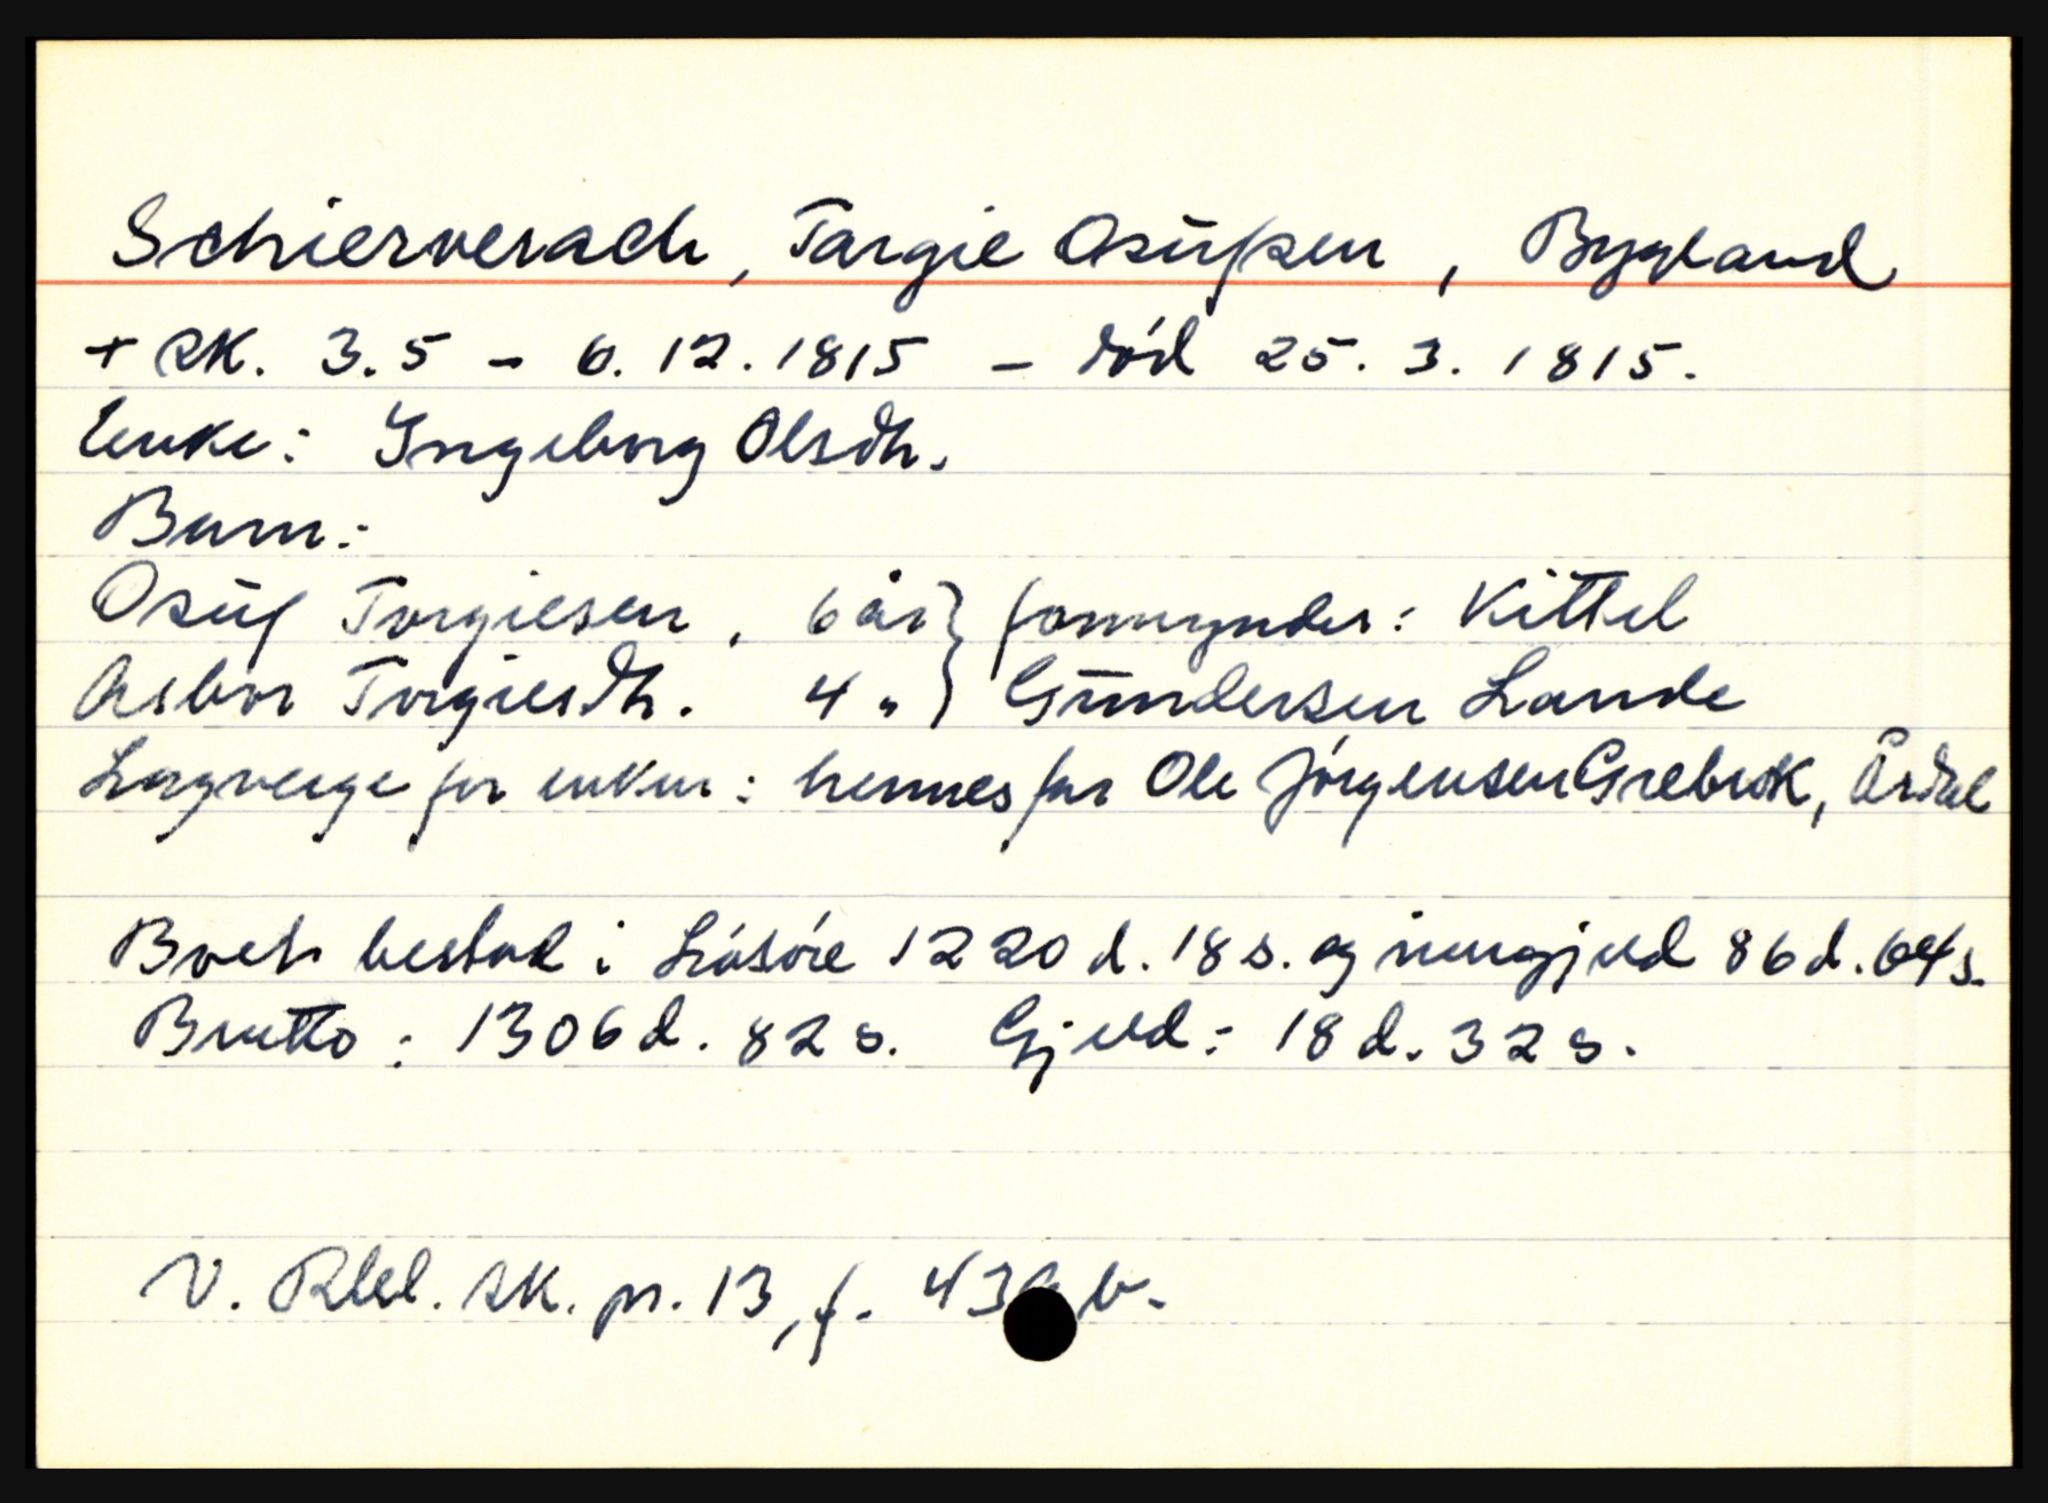 Schierverack, Targie Osufsen, Bygland
+ SK. 3.5 - 6.12.1815 - död 25.3.1815.
Enke: Yngeborg Olsdtr.
Barn:
Osuf Torgiesen, 6 år } formynder: Kittel
Asbor Torgiesdtr. 4 " } Gundersen Lande
Lagverge for enken: hennes far Ole Jörgensen Grebrok, Årdal
Boet bestod i Lösöre 1220 d. 18 s. og inngjeld 86 d. 64 s.
Brutto: 1306 d. 82 s. Gjeld: 18 d. 32 s.
V. Rbd. sk. pr. 13, f. 43 b.